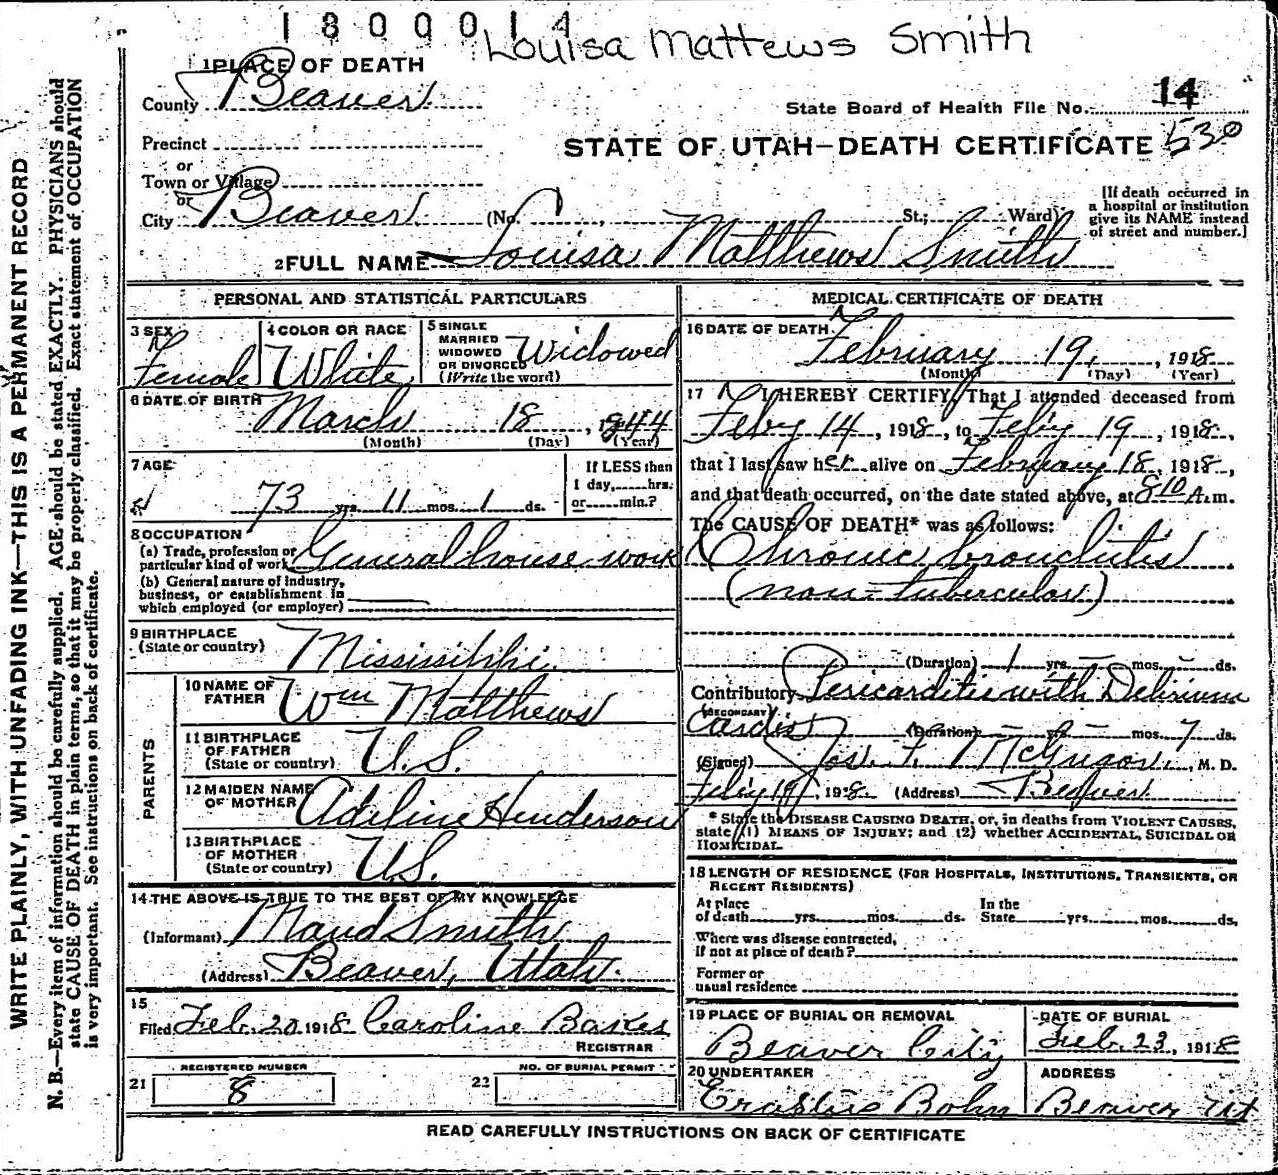 1800014
Louisa Mattews Smith
1 PLACE OF DEATH
County Beaver
State Board of Health File No. 14
Precinct
STATE OF UTAH—DEATH CERTIFICATE 530
or
Town or Village
or
City Beaver (No. , St.; Ward)
[If death occurred in
a hospital or institution
give its NAME instead
of street and number.]
2 FULL NAME Louisa Matthews Smith
PERSONAL AND STATISTICAL PARTICULARS
3 SEX Female
4 COLOR OR RACE White
5 SINGLE
MARRIED
WIDOWED
OR DIVORCED
(Write the word)
Widowed
6 DATE OF BIRTH March 18, 1844
(Month) (Day) (Year)
7 AGE
73 yrs. 11 mos. 1 ds.
If LESS than
1 day, hrs.
or min.?
8 OCCUPATION
(a) Trade, profession or
particular kind of work General house work
(b) General nature of industry,
business, or establishment in
which employed (or employer)
9 BIRTHPLACE
(State or country) Mississippi
PARENTS
10 NAME OF
FATHER Wm Matthews
11 BIRTHPLACE
OF FATHER
(State or country) U.S.
12 MAIDEN NAME
OF MOTHER Adeline Henderson
13 BIRTHPLACE
OF MOTHER
(State or country) U.S.
14 THE ABOVE IS TRUE TO THE BEST OF MY KNOWLEDGE
(Informant) Maud Smith
(Address) Beaver, Utah.
15
Filed Feb. 20 1918 Caroline
REGISTRAR
21 REGISTERED NUMBER
8
22 NO. OF BURIAL PERMIT
MEDICAL CERTIFICATE OF DEATH
16 DATE OF DEATH
February 19, 1918
(Month) (Day) (Year)
17 I HEREBY CERTIFY, That I attended deceased from
Feby 14, 1918, to Feby 19, 1918,
that I last saw her alive on February 18, 1918,
and that death occurred, on the date stated above, at 8 10 A.m.
The CAUSE OF DEATH* was as follows:
Chronic bronchitis
(non-tubercular)
(Duration) 1 yrs. – mos. – ds.
Contributory Pericarditis with Delirium
(SECONDARY)
Cordis (Duration) – yrs. – mos. 7 ds.
(Signed) Jos. F. , M. D.
Feby 19, 1918 (Address) Beaver
* State the DISEASE CAUSING DEATH, or, in deaths from VIOLENT CAUSES,
state (1) MEANS OF INJURY; and (2) whether ACCIDENTAL, SUICIDAL OR
HOMICIDAL.
18 LENGTH OF RESIDENCE (FOR HOSPITALS, INSTITUTIONS, TRANSIENTS, OR
RECENT RESIDENTS)
At place
of death yrs. mos. ds.
In the
State yrs. mos. ds,
Where was disease contracted,
if not at place of death?
Former or
usual residence
19 PLACE OF BURIAL OR REMOVAL
Beaver City
DATE OF BURIAL
Feb. 23, 1918
20 UNDERTAKER
Erastus Bohn
ADDRESS
Beaver Ut
READ CAREFULLY INSTRUCTIONS ON BACK OF CERTIFICATE
WRITE PLAINLY, WITH UNFADING INK—THIS IS A PERMANENT RECORD
N. B.—Every item of information should be carefully supplied. AGE should be stated EXACTLY. PHYSICIANS should
state CAUSE OF DEATH in plain terms, so that it may be properly classified. Exact statement of OCCUPATION
is very important. See instructions on back of certificate.